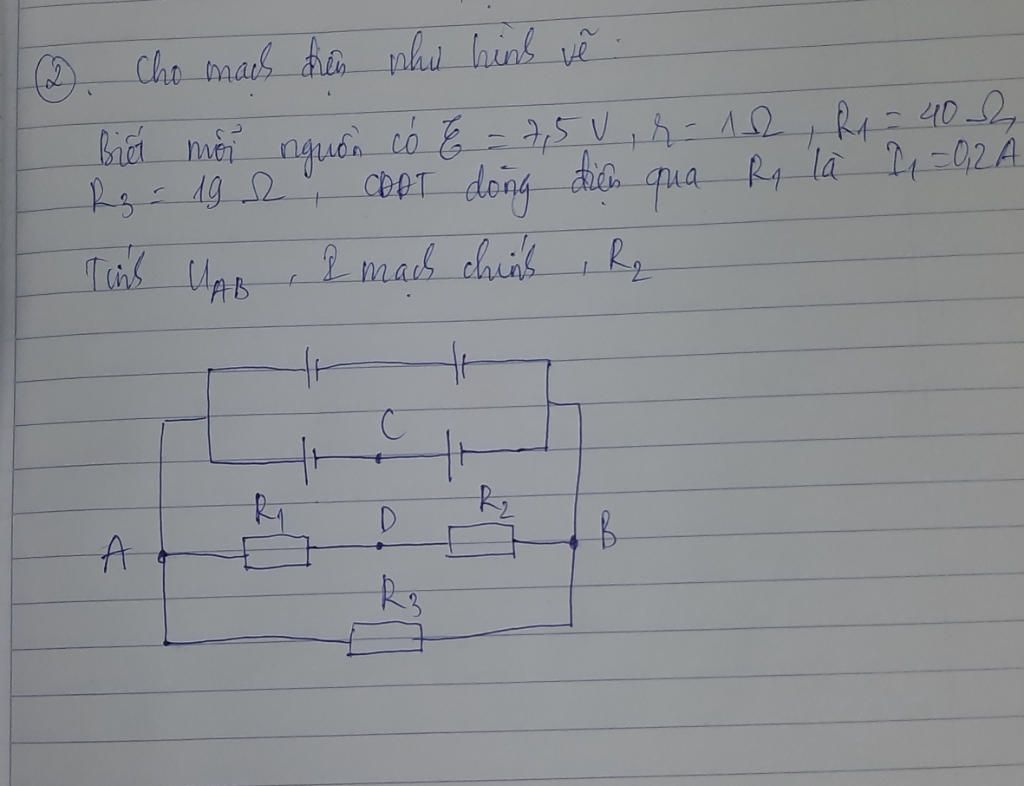 ②. Cho mạch điện như hình vẽ.
Biết mỗi nguồn có ξ = 7,5 V, r = 1 Ω, R₁ = 40 Ω,
R₃ = 19 Ω, CĐDT dòng điện qua R₁ là I₁ = 0,2 A
Tính U_AB, I mạch chính, R₂
C
R₁ D R₂
A B
R₃